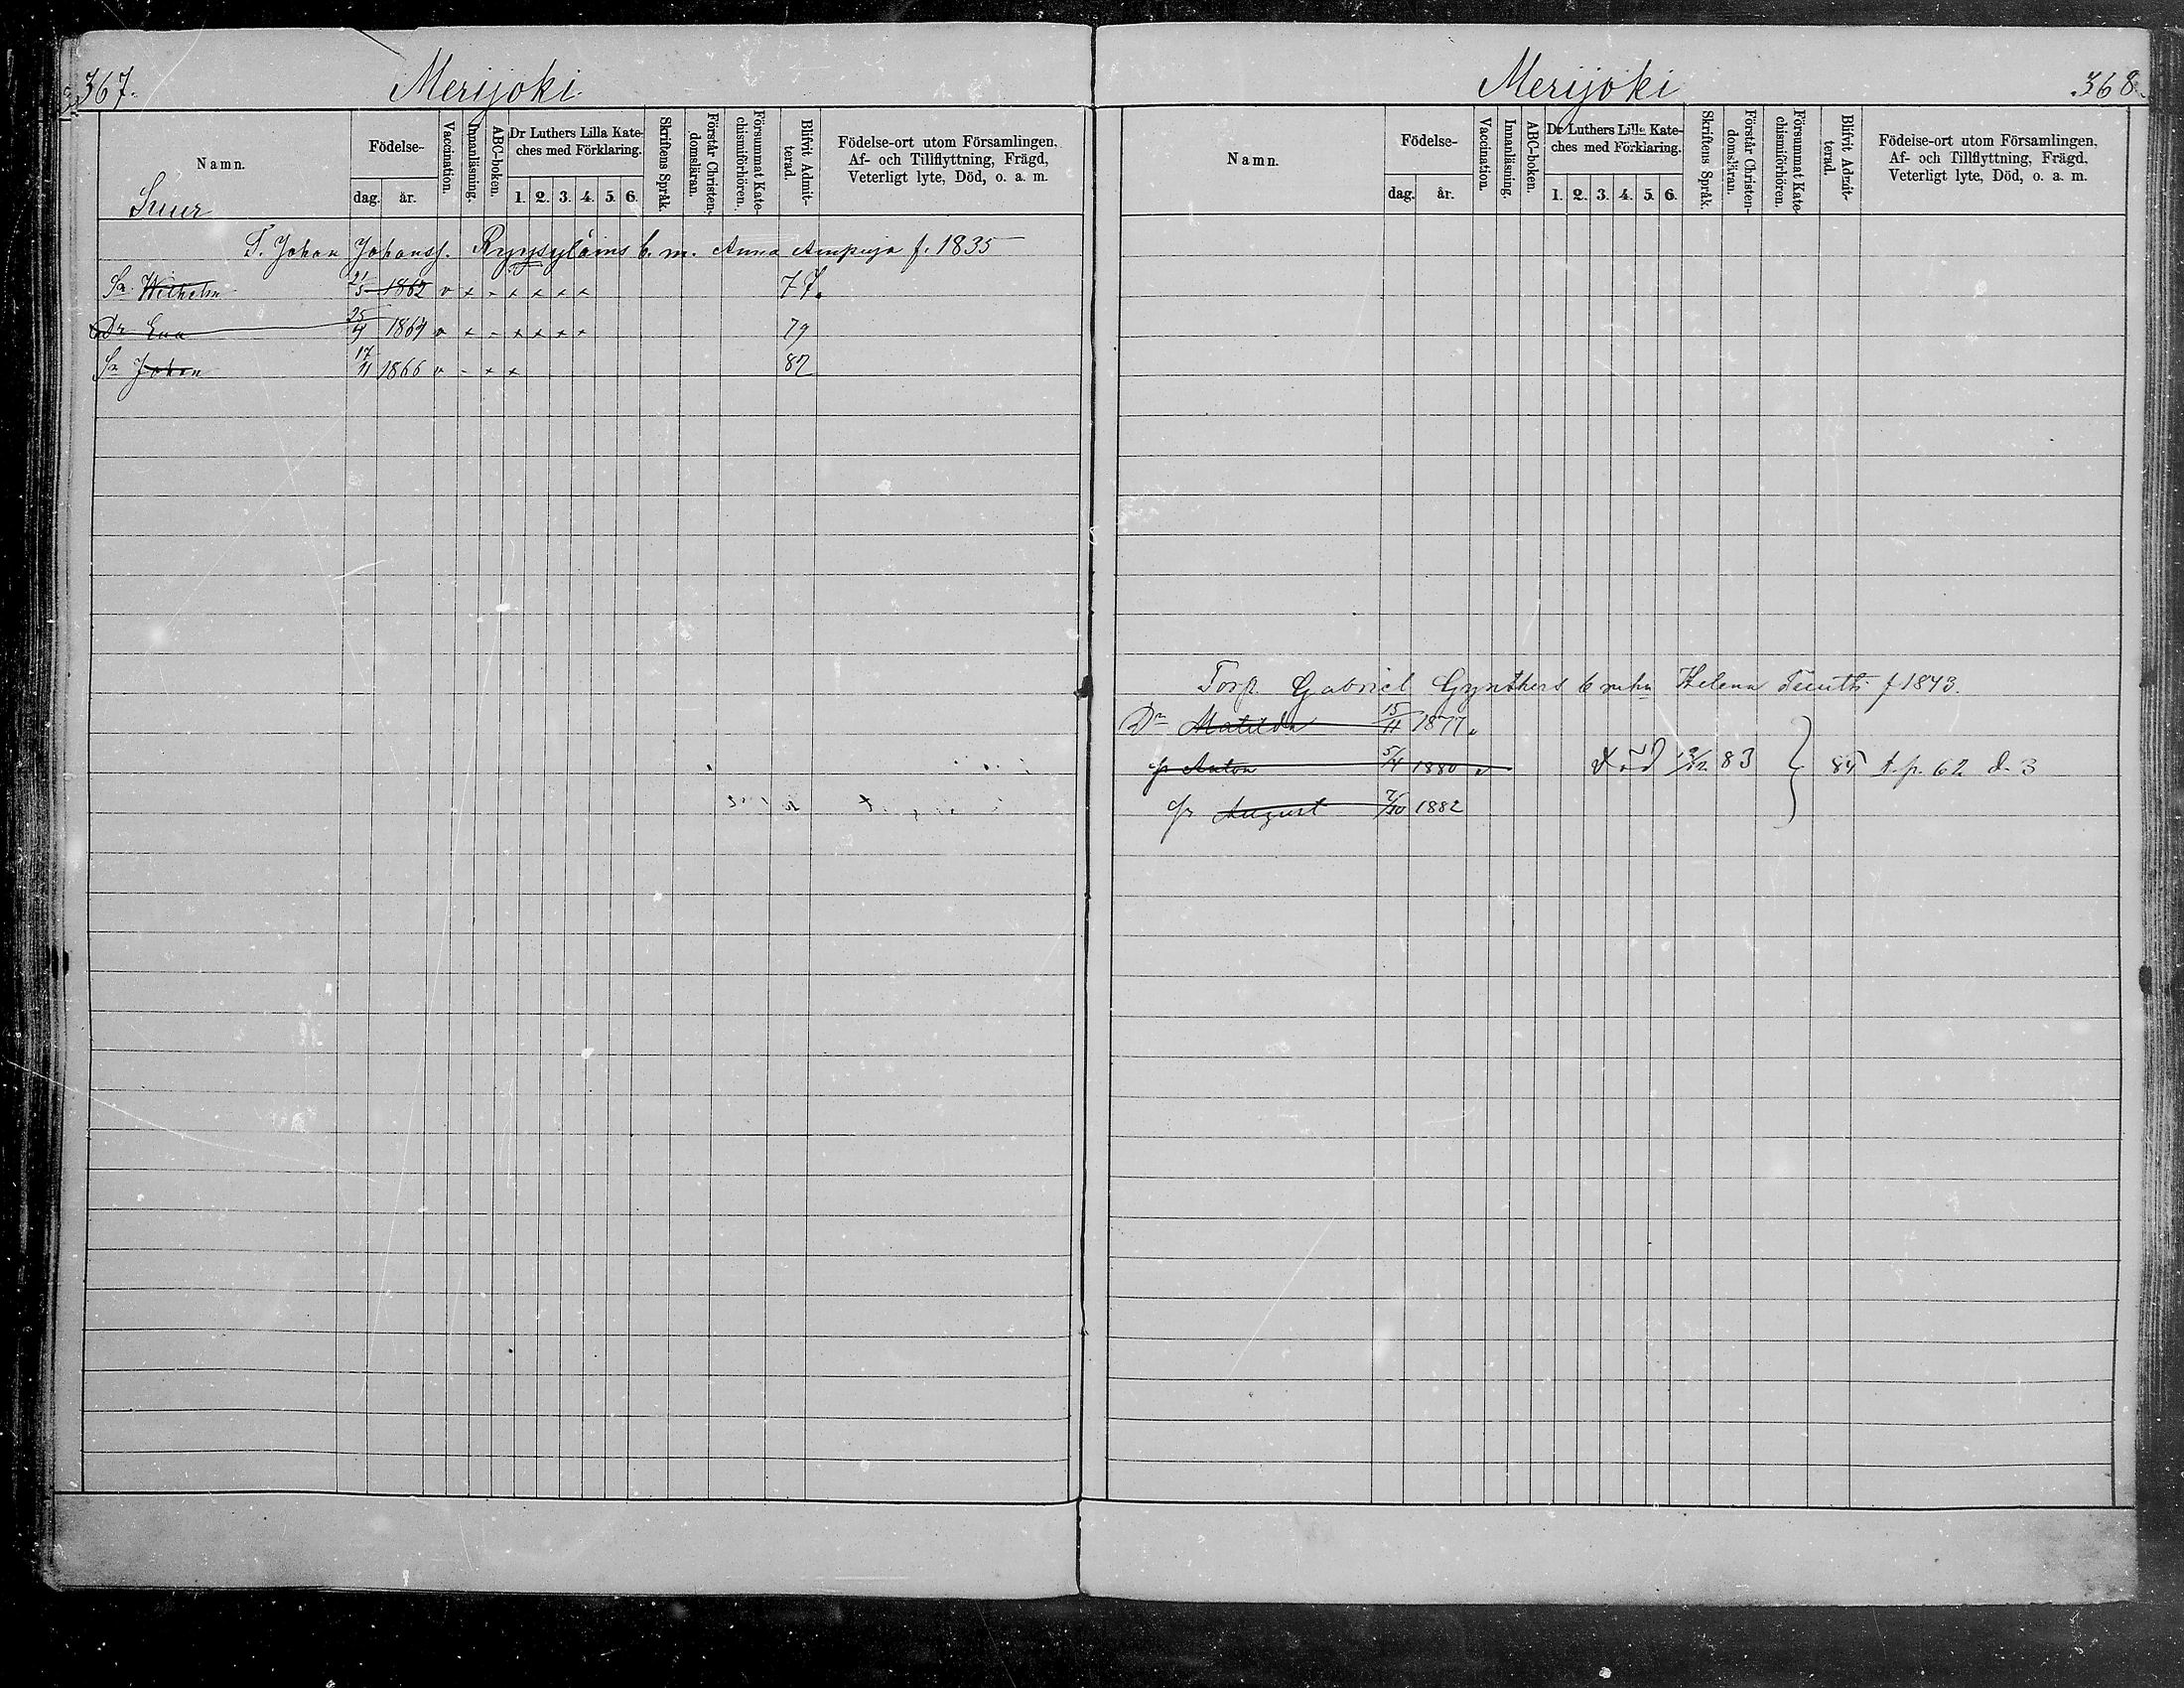 367. Merijoki
Namn. Födelse- dag. år. Vaccination. Innanläsning. ABC-boken. Dr Luthers Lilla Kate-ches med Förklaring. 1. 2. 3. 4. 5. 6. Skriftens Språk. Förstår Christen-domsläran. Försummat Kate-chismiförhören. Blifvit Admit-terad. Födelse-ort utom Församlingen. Af- och Tillflyttning, Frägd, Veterligt lyte, Död, o. a. m.
Suur
T. Johan Johanss. b. m. Anna Ampuja f. 1835
Sn Wilhelm 21/5 1862 v x - x x x x 77.
Dr Eva 25/4 1864 v x - x x x x 79
Sn Johan 17/11 1866 v - x x 82
Merijoki 368
Namn. Födelse- dag. år. Vaccination. Innanläsning. ABC-boken. Dr Luthers Lilla Kate-ches med Förklaring. 1. 2. 3. 4. 5. 6. Skriftens Språk. Förstår Christen-domsläran. Försummat Kate-chismiförhören. Blifvit Admit-terad. Födelse-ort utom Församlingen. Af- och Tillflyttning, Frägd, Veterligt lyte, Död, o. a. m.
Torp. Gabriel Gynthers b Helena f 1843.
Dr Matilda 15/11 1877
Anton 5/4 1880 v död 83 84 t. p. 62 d. 3
August 7/10 1882